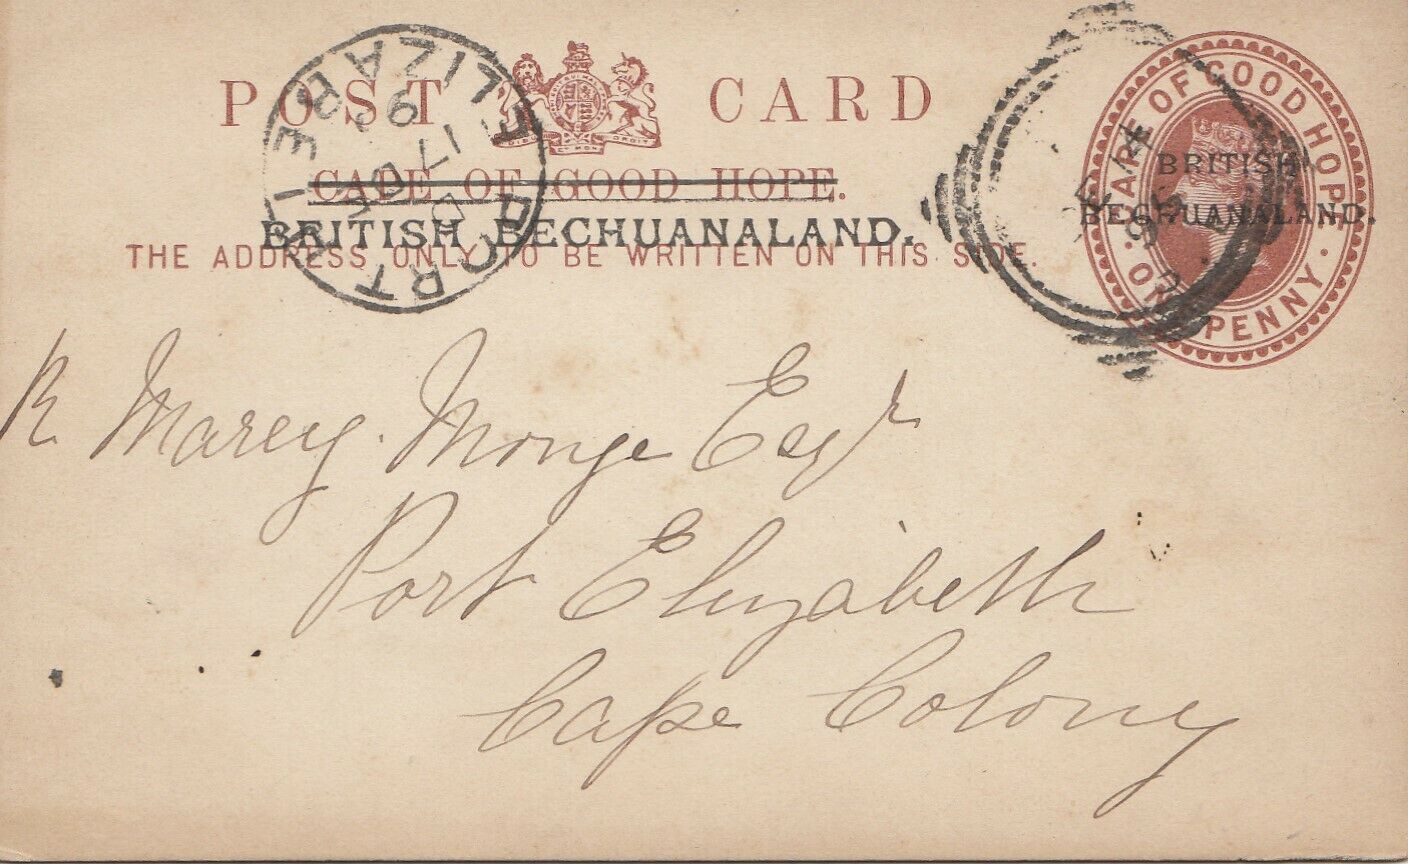 POST CARD
CAPE OF GOOD HOPE.
BRITISH BECHUANALAND.
THE ADDRESS ONLY TO BE WRITTEN ON THIS SIDE.
PORT ELIZABETH
17
DE
9
CAPE OF GOOD HOPE
BRITISH
BECHUANALAND.
ONE PENNY.
R Marcy Monge Esqr
Port Elizabeth
Cape Colony